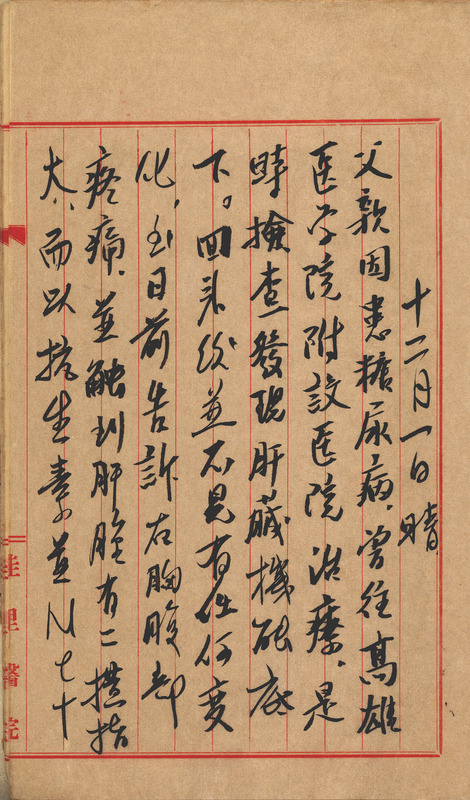 十二月一日 晴
父親因患糖尿病，曾往高雄
医学院附設医院治療，是
時撿查發現肝臟機能底
下。回来後並不見有任何变
化，到日前告訴右胸腹部
疼痛，並触到肝腫有二横指
大，而以抗生素並N七十
佳里醫院